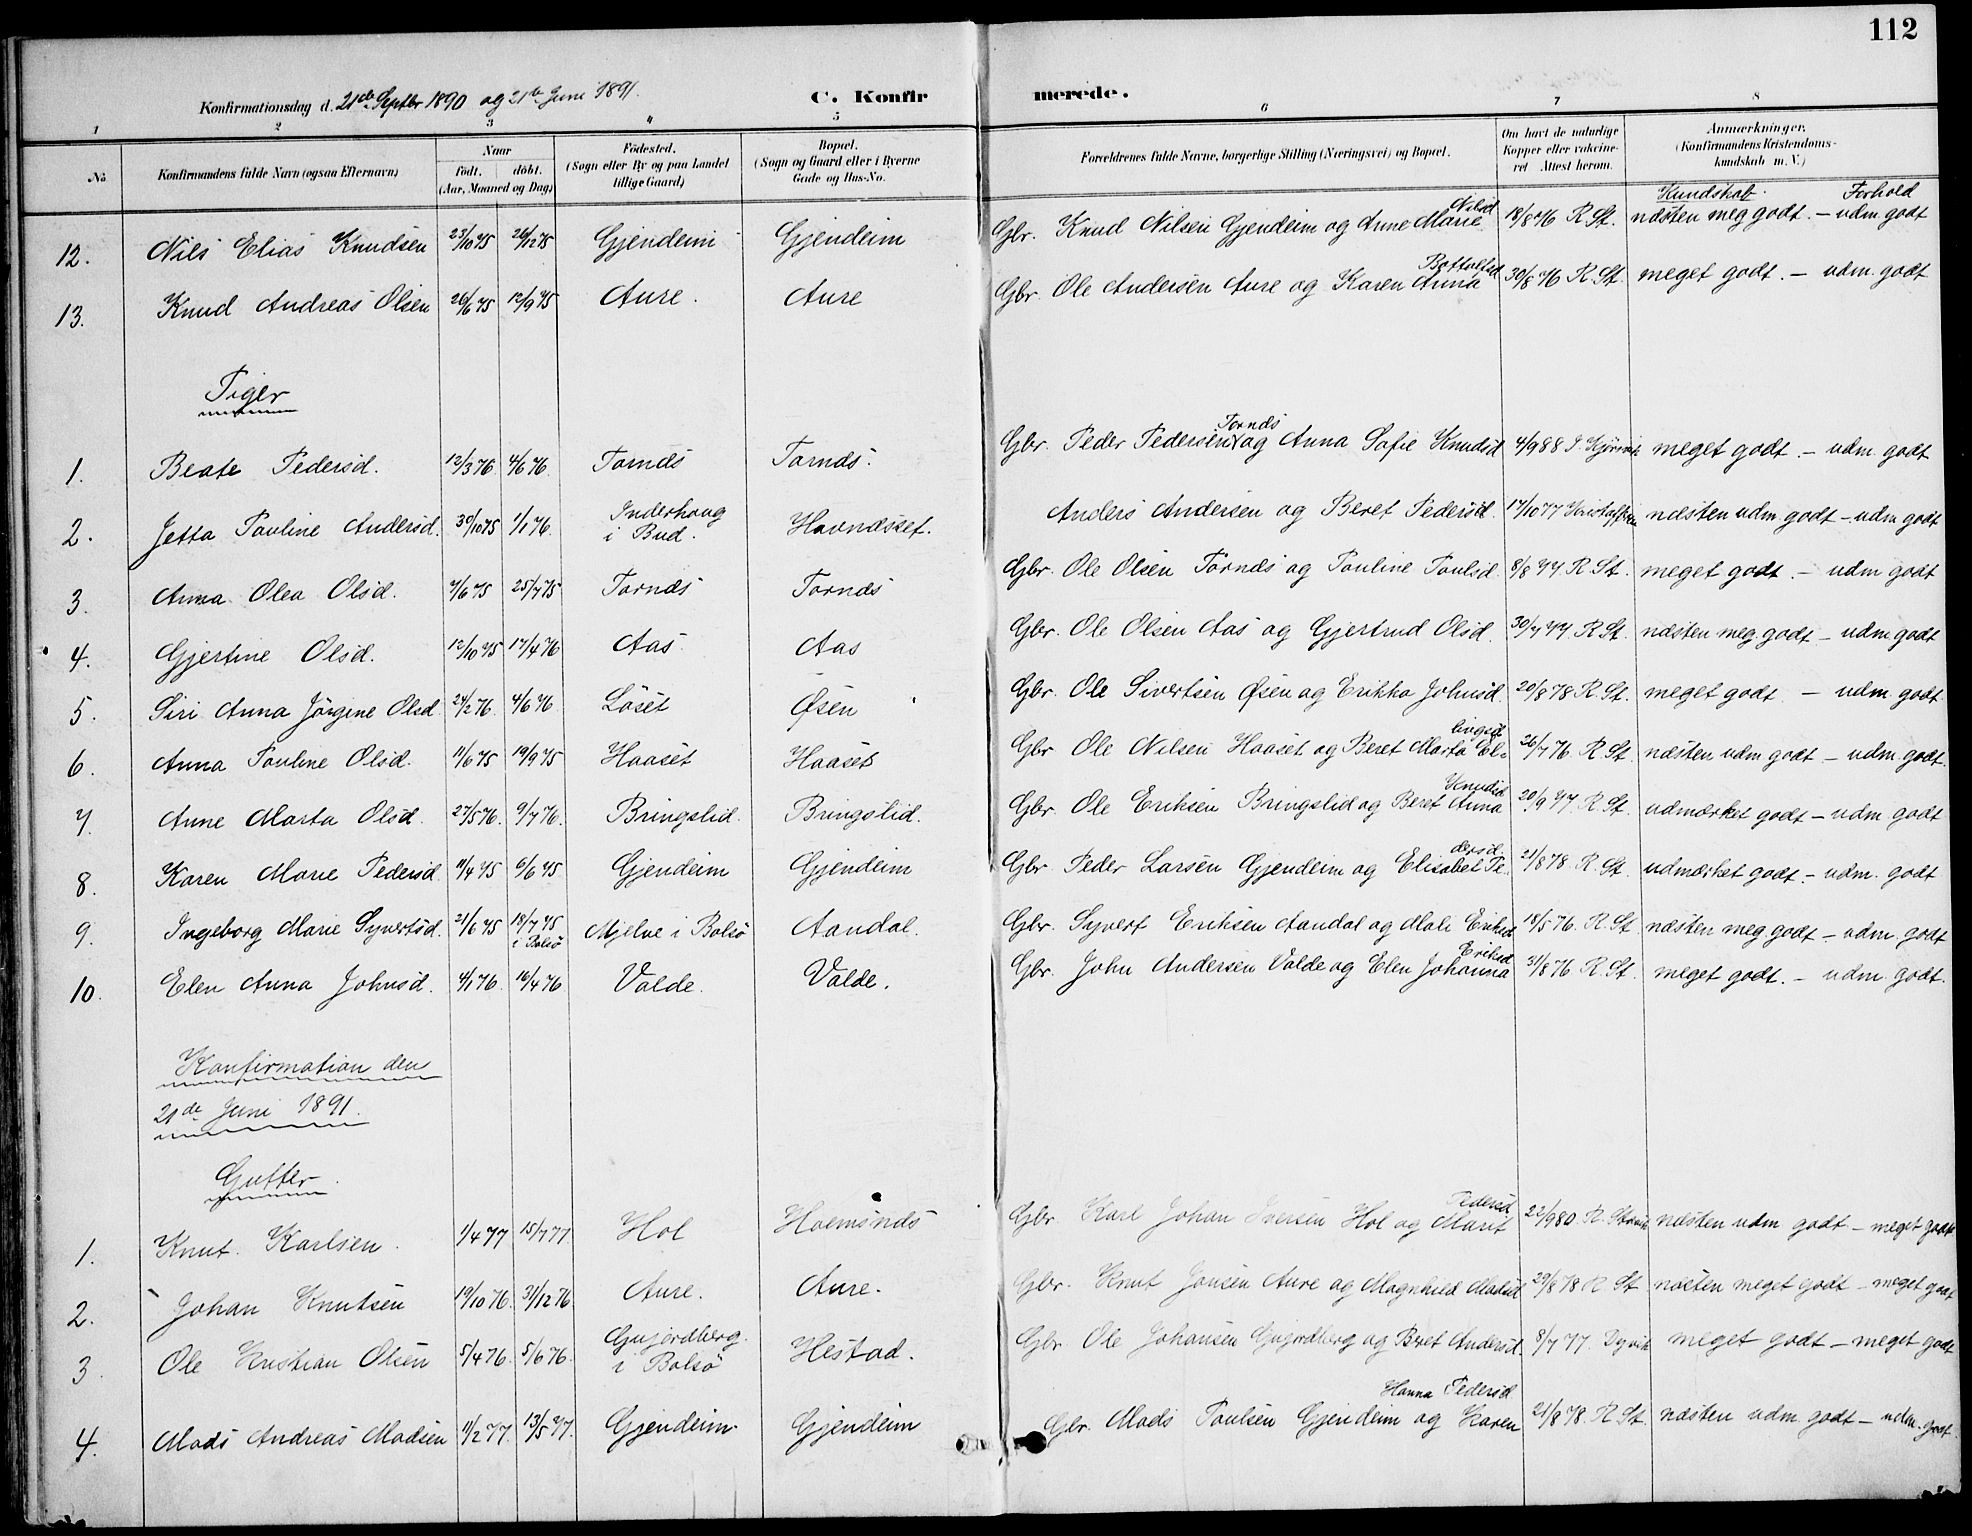 112
Konfirmationsdag d. 21de Septbr 1890 og 21de Juni 1891.
C. Konfirmerede.
1 2 3 4 5 6 7 8
No. Konfirmandens fulde Navn (ogsaa Efternavn) Naar født. døbt. (Aar, Maaned og Dag) Fødested. (Sogn eller By og paa Landet tillige Gaard) Bopæl. (Sogn og Gaard eller i Byerne Gade og Hus-No. Forældrenes fulde Navne, borgerlige Stilling (Næringsvei) og Bopæl. Om havt de naturlige Kopper eller vakcineret Attest herom. Anmærkninger. (Konfirmandens Kristendomskundskab m. V.)
Kundskab. Forhold
12. Nils Elias Knudsen 23/10 75 26/12 75 Gjendeim Gjendeim Gbr. Knud Nilsen Gjendeim og Anne Marie Nilsd 18/8 76 R. St. næsten meg godt. – udm. godt
13. Knud Andreas Olsen 26/6 75 12/9 75 Aure. Aure Gbr. Ole Andersen Aure og Karen Anna Bottolfsd 30/8 76 R. St. meget godt. – udm. godt
Piger
1. Beate Pedersd. 12/3 76 4/6 76 Tornds Tornds. Gbr. Peder Pedersen Tornds og Anna Sofie Knudsd 4/9 88 meget godt. – udm. godt
2. Jetta Pauline Andersd. 30/10 75 1/1 76 Inderhaug i Bud. Havnæsset. Anders Andersen og Beret Pedersd. 17/10 77 næsten udm. godt – udm. godt
3. Anna Olea Olsd. 7/6 75 25/7 75 Tornds Tornds Gbr. Ole Olsen Tornds og Pauline Paulsd. 8/8 77 R. St. meget godt. – udm. godt
4. Gjertine Olsd. 12/10 75 17/4 76 Aas Aas Gbr. Ole Olsen Aas og Gjertrud Olsd. 30/7 77. R. St. næsten meg. godt – udm. godt
5. Siri Anna Jørgine Olsd. 24/2 76. 4/6 76 Løset Øsen Gbr. Ole Sivertsen Øsen og Erikka Johnsd. 20/8 78 R. St. meget godt – udm. godt
6. Anna Pauline Olsd. 11/6 75 19/9 75 Haaset Haaset Gbr. Ole Nilsen Haaset og Beret Marta Ellingsd 26/7 76. R. St. næsten udm godt – udm godt.
7. Anne Marta Olsd. 27/5 76. 9/7 76. Bringslid. Bringslid. Gbr. Ole Eriksen Bringslid og Beret Anna Knudsd 20/9 77. R. St. udmærket godt – udm. godt
8. Karen Marie Pedersd. 11/4 75 6/6 75 Gjendeim Gjendeim Gbr. Peder Larsen Gjendeim og Elisabet Pedersd. 21/8 78. R. St. udmærket godt. – udm. godt
9. Ingeborg Marie Syvertsd. 21/6 75 18/7 75 i Bolsø Mjelve i Bolsø Aandal. Gbr. Syvert Eriksen Aandal og Mali Eriksd 18/5 76. R. St. næsten meg. godt – udm. godt
10. Elen Anna Johnsd. 4/1 76. 16/4 76 Valde. Valde. Gbr. John Andersen Valde og Elen Johanna Eriksd 31/8 76 R. St. meget godt. – udm. godt.
Konfirmation den
21de Juni 1891.
Gutter.
1. Knut Karlsen. 1/4 77 15/7 77 Hol Gbr. Karl Johan Iversen Hol og Marit Pedersd 22/9 80. næsten udm godt – meget godt
2. Johan Knutsen 19/10 76. 31/12 76. Aure. Aure. Gbr. Knut Jonsen Aure og Magnhild Madsd 29/8 78 R. St næsten meget godt – meget godt
3. Ole Kristian Olsen 5/4 76. 5/6 76. Gujordberg. i Bolsø Hestad. Gbr. Ole Johansen Gujordberg og Beret Andersd. 8/7 77. Dyrvik meget godt – meget godt
4. Mads Andreas Madsen 11/2 77. 13/5 77. Gjendeim. Gjendeim Gbr. Mads Paulsen Gjendeim og Karen Hanna Pedersd 21/8 78. R. St. næsten udm. godt – udm. godt.